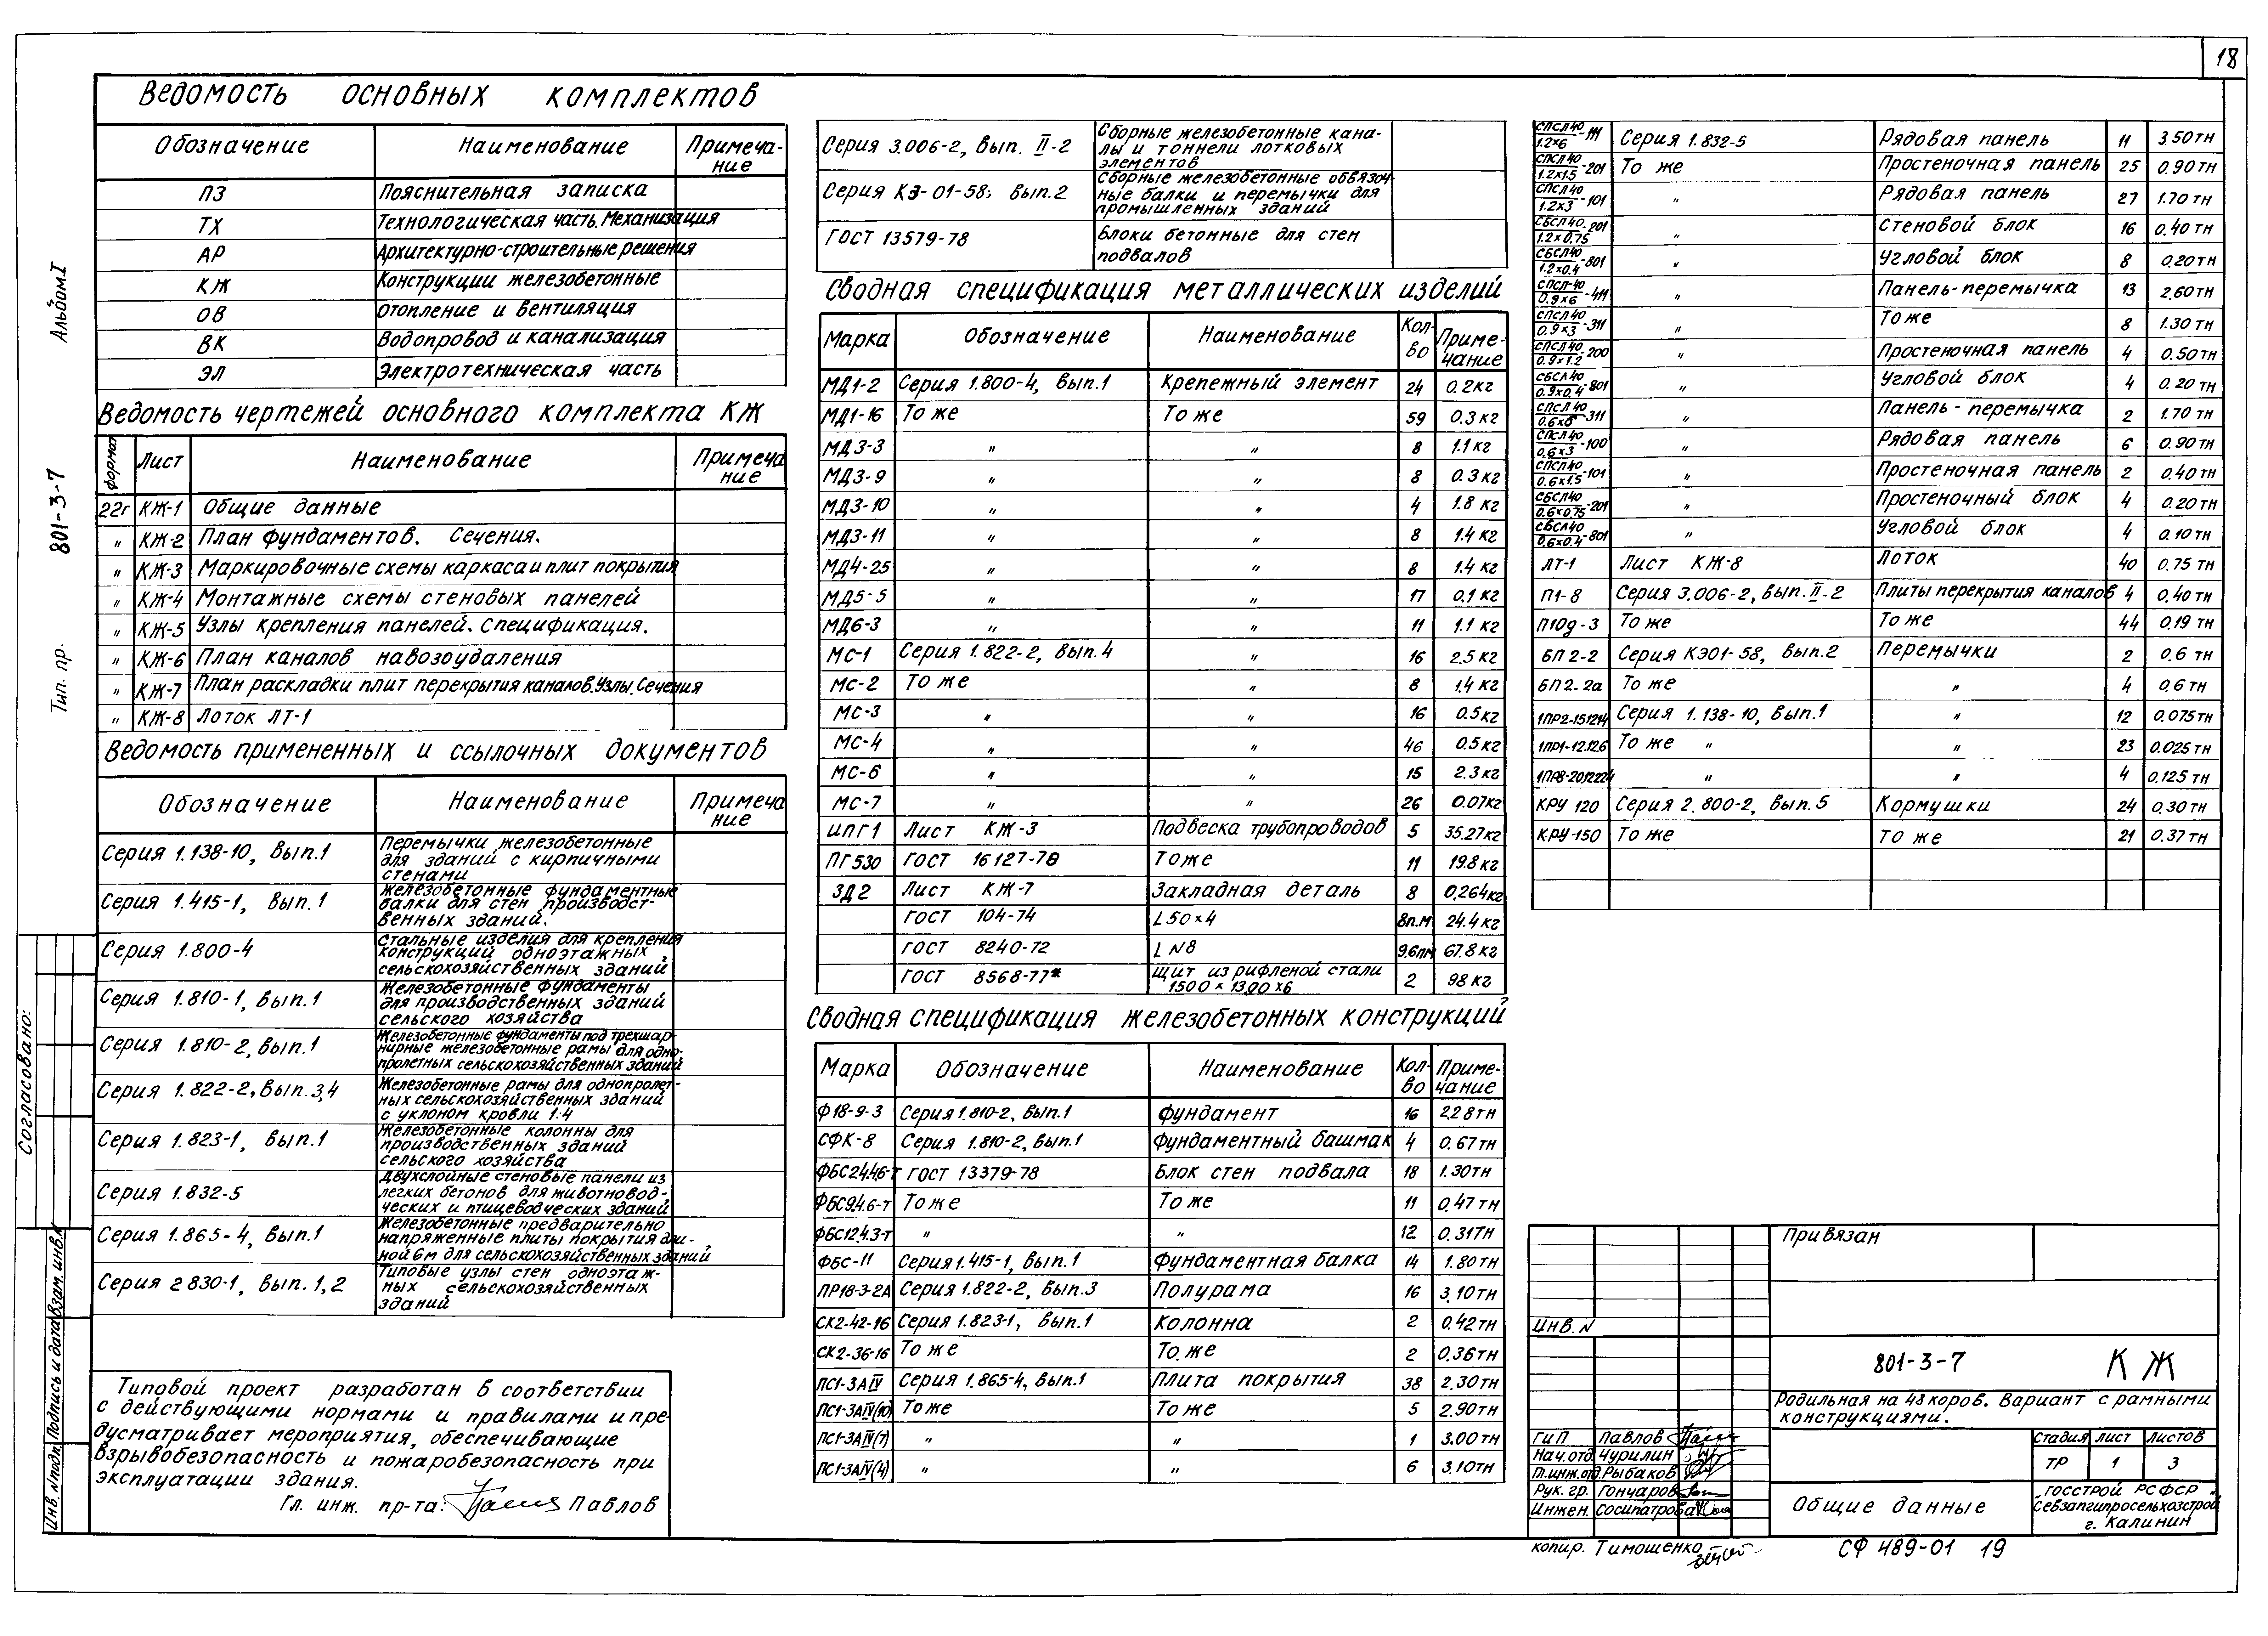 18
Альбом I
801-3-7
Тип. пр.
Согласовано:
Взам. инв. №
Подпись и дата
Инв. № подл.
Ведомость основных комплектов
Обозначение Наименование Примеча-
ние
ПЗ Пояснительная записка
ТХ Технологическая часть. Механизация
АР Архитектурно-строительные решения
КЖ Конструкции железобетонные
ОВ Отопление и вентиляция
ВК Водопровод и канализация
ЭЛ Электротехническая часть
Ведомость чертежей основного комплекта КЖ
формат Лист Наименование Примеча
ние
22г КЖ-1 Общие данные
" КЖ-2 План фундаментов. Сечения.
" КЖ-3 Маркировочные схемы каркаса и плит покрытия
" КЖ-4 Монтажные схемы стеновых панелей
" КЖ-5 Узлы крепления панелей. Спецификация.
" КЖ-6 План каналов навозоудаления
" КЖ-7 План раскладки плит перекрытия каналов. Узлы. Сечения
" КЖ-8 Лоток ЛТ-1
Ведомость примененных и ссылочных документов
Обозначение Наименование Примеча
ние
Серия 1.138-10, вып.1 Перемычки железобетонные
для зданий с кирпичными
стенами
Серия 1.415-1, вып.1 Железобетонные фундаментные
балки для стен производст-
венных зданий.
Серия 1.800-4 Стальные изделия для крепления
конструкций одноэтажных
сельскохозяйственных зданий
Серия 1.810-1, вып.1 Железобетонные фундаменты
для производственных зданий
сельского хозяйства
Серия 1.810-2, вып.1 Железобетонные фундаменты под трехшар-
нирные железобетонные рамы для одно-
пролетных сельскохозяйственных зданий
Серия 1.822-2, вып.3,4 Железобетонные рамы для однопролет-
ных сельскохозяйственных зданий
с уклоном кровли 1:4
Серия 1.823-1, вып.1 Железобетонные колонны для
производственных зданий
сельского хозяйства
Серия 1.832-5 Двухслойные стеновые панели из
легких бетонов для животновод-
ческих и птицеводческих зданий
Серия 1.865-4, вып.1 Железобетонные предварительно
напряженные плиты покрытия дли-
ной 6м для сельскохозяйственных зданий
Серия 2 830-1, вып. 1,2 Типовые узлы стен одноэтаж-
ных сельскохозяйственных
зданий
Типовой проект разработан в соответствии
с действующими нормами и правилами и пре-
дусматривает мероприятия, обеспечивающие
взрывобезопасность и пожаробезопасность при
эксплуатации здания.
Гл. инж. пр-та: Павлов
Серия 3.006-2, вып. II-2 Сборные железобетонные кана-
лы и тоннели лотковых
элементов
Серия КЭ-01-58; вып.2 Сборные железобетонные обвязоч-
ные балки и перемычки для
промышленных зданий
ГОСТ 13579-78 Блоки бетонные для стен
подвалов
Сводная спецификация металлических изделий
Марка Обозначение Наименование Кол-
во Приме-
чание
МД1-2 Серия 1.800-4, вып.1 Крепежный элемент 24 0.2кг
МД1-16 То же То же 59 0.3 кг
МД3-3 " " 8 1.1 кг
МД3-9 " " 8 0.3 кг
МД3-10 " " 4 1.8 кг
МД3-11 " " 8 1.4 кг
МД4-25 " " 8 1.4 кг
МД5-5 " " 17 0.1 кг
МД6-3 " " 11 1.1 кг
МС-1 Серия 1.822-2, вып.4 " 16 2.5 кг
МС-2 То же " 8 1.4 кг
МС-3 " " 16 0.5кг
МС-4 " " 46 0.5 кг
МС-6 " " 15 2.3 кг
МС-7 " " 26 0.07кг
ИПГ1 Лист КЖ-3 Подвеска трубопроводов 5 35.27кг
ПГ530 ГОСТ 16127-78 То же 11 19.8 кг
ЗД2 Лист КЖ-7 Закладная деталь 8 0,264кг
ГОСТ 104-74 L 50×4 8п.м 24.4 кг
ГОСТ 8240-72 L N8 9.6пм 67.8 кг
ГОСТ 8568-77* Щит из рифленой стали
1500×1300×6 2 98 кг
Сводная спецификация железобетонных конструкций
Марка Обозначение Наименование Кол-
во Приме-
чание
Ф18-9-3 Серия 1.810-2, вып.1 Фундамент 16 2.28тн
СФК-8 Серия 1.810-2, вып.1 Фундаментный башмак 4 0.67тн
ФБС24.4.6-т ГОСТ 13379-78 Блок стен подвала 18 1.30тн
ФБС9.4.6-т То же То же 11 0.47 тн
ФБС12.4.3-т " " 12 0.31тн
ФБС-11 Серия 1.415-1, вып.1 Фундаментная балка 14 1.80 тн
ПР18-3-2А Серия 1.822-2, вып.3 Полурама 16 3.10тн
СК2-42-16 Серия 1.823-1, вып.1 Колонна 2 0.42тн
СК2-36-16 То же То же 2 0.36тн
ПС1-3АIV Серия 1.865-4, вып.1 Плита покрытия 38 2.30тн
ПС1-3АIV(10) То же То же 5 2.90тн
ПС1-3АIV(7) " " 1 3.00 тн
ПС1-3АIV(4) " " 6 3.10тн
СПСЛ40/1.2×6-111 Серия 1.832-5 Рядовая панель 11 3.50тн
СПСЛ40/1.2×1.5-201 То же Простеночная панель 25 0.90тн
СПСЛ40/1.2×3-101 " Рядовая панель 27 1.70 тн
СБСЛ40/1.2×0.75-201 " Стеновой блок 16 0.40 тн
СБСЛ40/1.2×0.4-801 " Угловой блок 8 0.20тн
СПСЛ-40/0.9×6-411 " Панель-перемычка 13 2.60тн
СПСЛ40/0.9×3-311 " То же 8 1.30 тн
СПСЛ40/0.9×1.2-200 " Простеночная панель 4 0.50тн
СБСЛ40/0.9×0.4-801 " Угловой блок 4 0.20 тн
СПСЛ40/0.6×6-311 " Панель-перемычка 2 1.70 тн
СПСЛ40/0.6×3-100 " Рядовая панель 6 0.90тн
СПСЛ40/0.6×1.5-101 " Простеночная панель 2 0.40тн
СБСЛ40/0.6×0.75-201 " Простеночный блок 4 0.20тн
СБСЛ40/0.6×0.4-801 " Угловой блок 4 0.10тн
ЛТ-1 Лист КЖ-8 Лоток 40 0.75 тн
П1-8 Серия 3.006-2, вып.II-2 Плиты перекрытия каналов 4 0.40тн
П10д-3 То же То же 44 0.19 тн
БП2-2 Серия КЭ01-58, вып.2 Перемычки 2 0.6 тн
БП2-2а То же " 4 0.6 тн
1ПР2-15.12.14 Серия 1.138-10, вып.1 " 12 0.075тн
1ПР1-12.12.6 То же " " 23 0.025 тн
1ПР8-20.12.22.4 " " 4 0.125 тн
КРУ 120 Серия 2.800-2, вып.5 Кормушки 24 0.30 тн
КРУ-150 То же То же 21 0.37 тн
Привязан
Инв. N
801-3-7 КЖ
Родильная на 48 коров. Вариант с рамными
конструкциями.
ГиП Павлов
Нач.отд. Чурилин
Гл.инж.отд. Рыбаков
Рук. гр. Гончаров
Инжен. Сосипатрова
Стадия Лист Листов
ТР 1 3
Общие данные
Госстрой РСФСР
"Севзапгипросельхозстрой"
г. Калинин
копир. Тимошенко
СФ 489-01 19